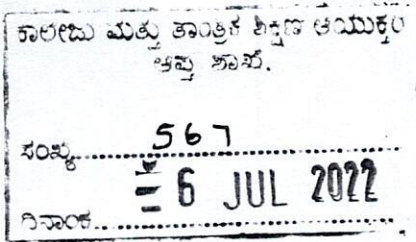 ಕಾಲೇಜು ಮತ್ತು ತಾಂತ್ರಿಕ ಶಿಕ್ಷಣ ಆಯುಕ್ತರ
ಆಪ್ತ ಶಾಖೆ.
ಸಂಖ್ಯೆ.......567.......
ದಿನಾಂಕ....... 6 JUL 2022